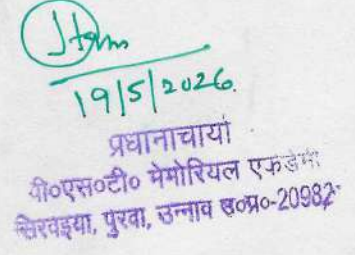 19/5/2026.
प्रधानाचार्या
वी०एस०टी० मेमोरियल एकडेमी
सिरवइया, पुरवा, उन्नाव उ०प्र०-20982